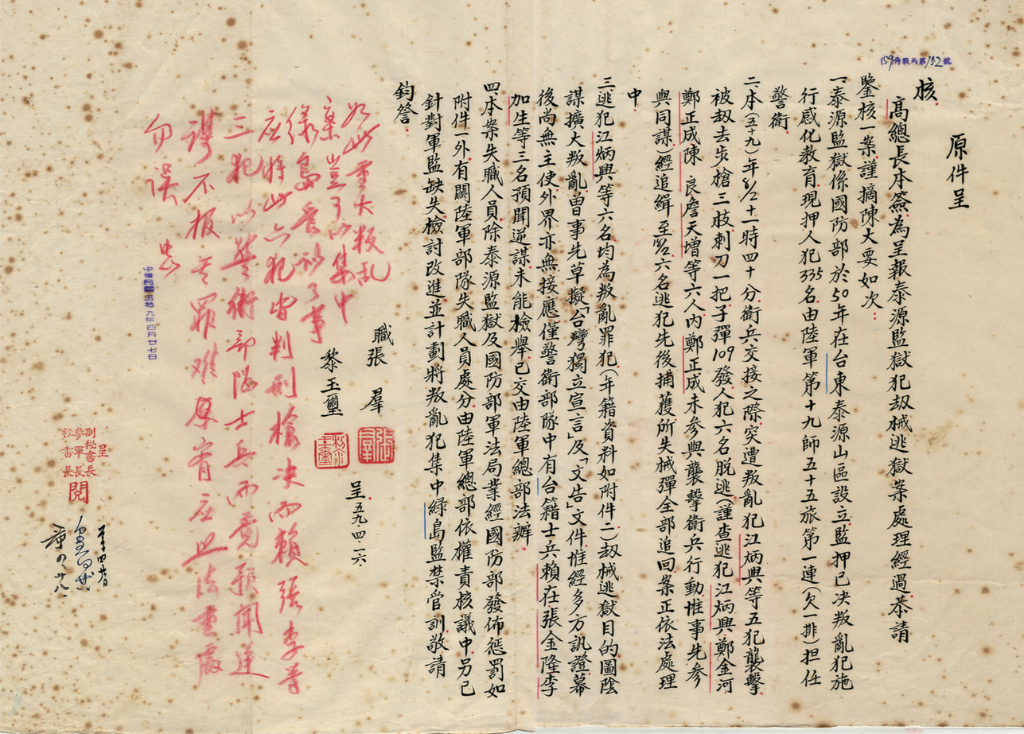 (59)侍戰天第102號
原件呈
核
高總長本簽為呈報泰源監獄犯刼械逃獄案處理經過恭請
鑒核一案謹摘陳大要如次：
一泰源監獄係國防部於50年在台東泰源山區設立監押已决叛亂犯施
行感化教育現押人犯335名由陸軍第十九師五十五旅第一連(欠一排)担任
警衛
二本(五十九)年2/8十一時四十分衛兵交接之際突遭叛亂犯江炳興等五犯襲擊
被刼去步槍三枝刺刀一把子彈109發人犯六名脫逃(謹查逃犯江炳興鄭金河
鄭正成陳良詹天增等六人內鄭正成未參與襲擊衛兵行動惟事先參
與同謀)經追緝至六名逃犯先後捕獲所失械彈全部追回案正依法處理
中
三逃犯江炳興等六名均為叛亂罪犯(年籍資料如附件二)刼械逃獄目的圖陰
謀擴大叛亂曾事先草擬「台灣獨立宣言」及「文告」文件惟經多方訊證幕
後尚無主使外界亦無接應僅警衛部隊中有台籍士兵賴在張金隆李
加生等三名預聞逆謀未能檢舉已交由陸軍總部法辦
四本案失職人員除泰源監獄及國防部軍法局業經國防部發佈懲罰如
附件一外有關陸軍部隊失職人員處分由陸軍總部依權責核議中另已
針對軍監缺失檢討改進並計劃將叛亂犯集中綠島監禁管訓敬請
鈞詧
職張羣
黎玉璽
呈五九四二六
如此重大叛亂
案豈可以集中
綠島管訓了事
應將此六犯皆判刑槍决而賴張李等
三犯以警衛部隊士兵而竟預聞逆
謀不報其罪难原宥應照法重處
勿誤
中華民國五拾九年四月廿七日
呈
副秘書長
參軍長
秘書長
閱